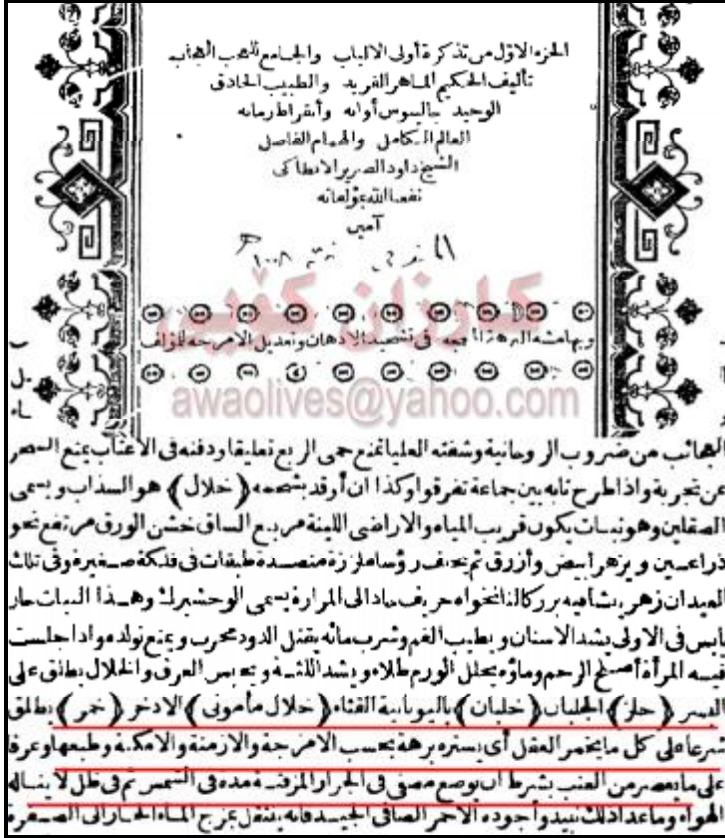 الجزء الاول من تذكرة أولى الالباب والجامع للعجب العجاب
تأليف الحكيم الماهر الفريد والطبيب الحاذق
الوحيد جالينوس أوانه وأبقراط زمانه
العالم الكامل والهمام الفاضل
الشيخ داود الضرير الانطاكى
نفعنا الله بمؤلفاته
آمين
١٠٠٨
كارزان كۆيى
وبهامشه النزهة المبهجة فى تشحيذ الاذهان وتعديل الامزجة للمؤلف
awaolives@yahoo.com
العجائب من ضروب الروحانية وشفته العليا تمنع حمى الربع تعليقا ودفنه فى الاعتاب يمنع السحر
عن تجربة واذا طرح نابه بين جماعة تفرقوا وكذا ان أوقد بشحمه (خلال) هو السذاب ويسمى
الصقلين وهو نبات يكون قريب المياه والاراضى اللينة مربع الساق خشن الورق مرتفع نحو
ذراعين ويزهر أبيض وأزرق ثم يخلف رؤسا ملززة منضدة طبقات فى فلكة صغيرة وفى تلك
العيدان زهر يشابهه بزر كالنانخواه حريف حاد الى المرارة يسمى الوحشيزك وهذا النبات حار
يابس فى الاولى يشد الاسنان ويطيب الفم وشرب مائه يقتل الدود مجرب ويمنع تولده واذا جلست
فيه المرأة أصلح الرحم وماؤه يحلل الورم طلاء ويشد اللثة ويحبس العرق والخلال يطلق على
البسر (خلز) الجلبان (خلبان) باليونانية القثاء (خلال مأمونى) الاذخر (خمر) يطلق
شرعا على كل ما يخمر العقل أى يستره برهة بحسب الامزجة والازمنة والامكنة وطبعها وعرفا
على ما يعصر من العنب بشرط أن يوضع مصفى فى الجرار المزفتة مدة فى الشمس ثم فى ظل لا يناله
الهواء وما عدا ذلك نبيذ وأجوده الاحمر الصافى الجيد فانه ينتقل بمزج الماء الحار الى الصفرة